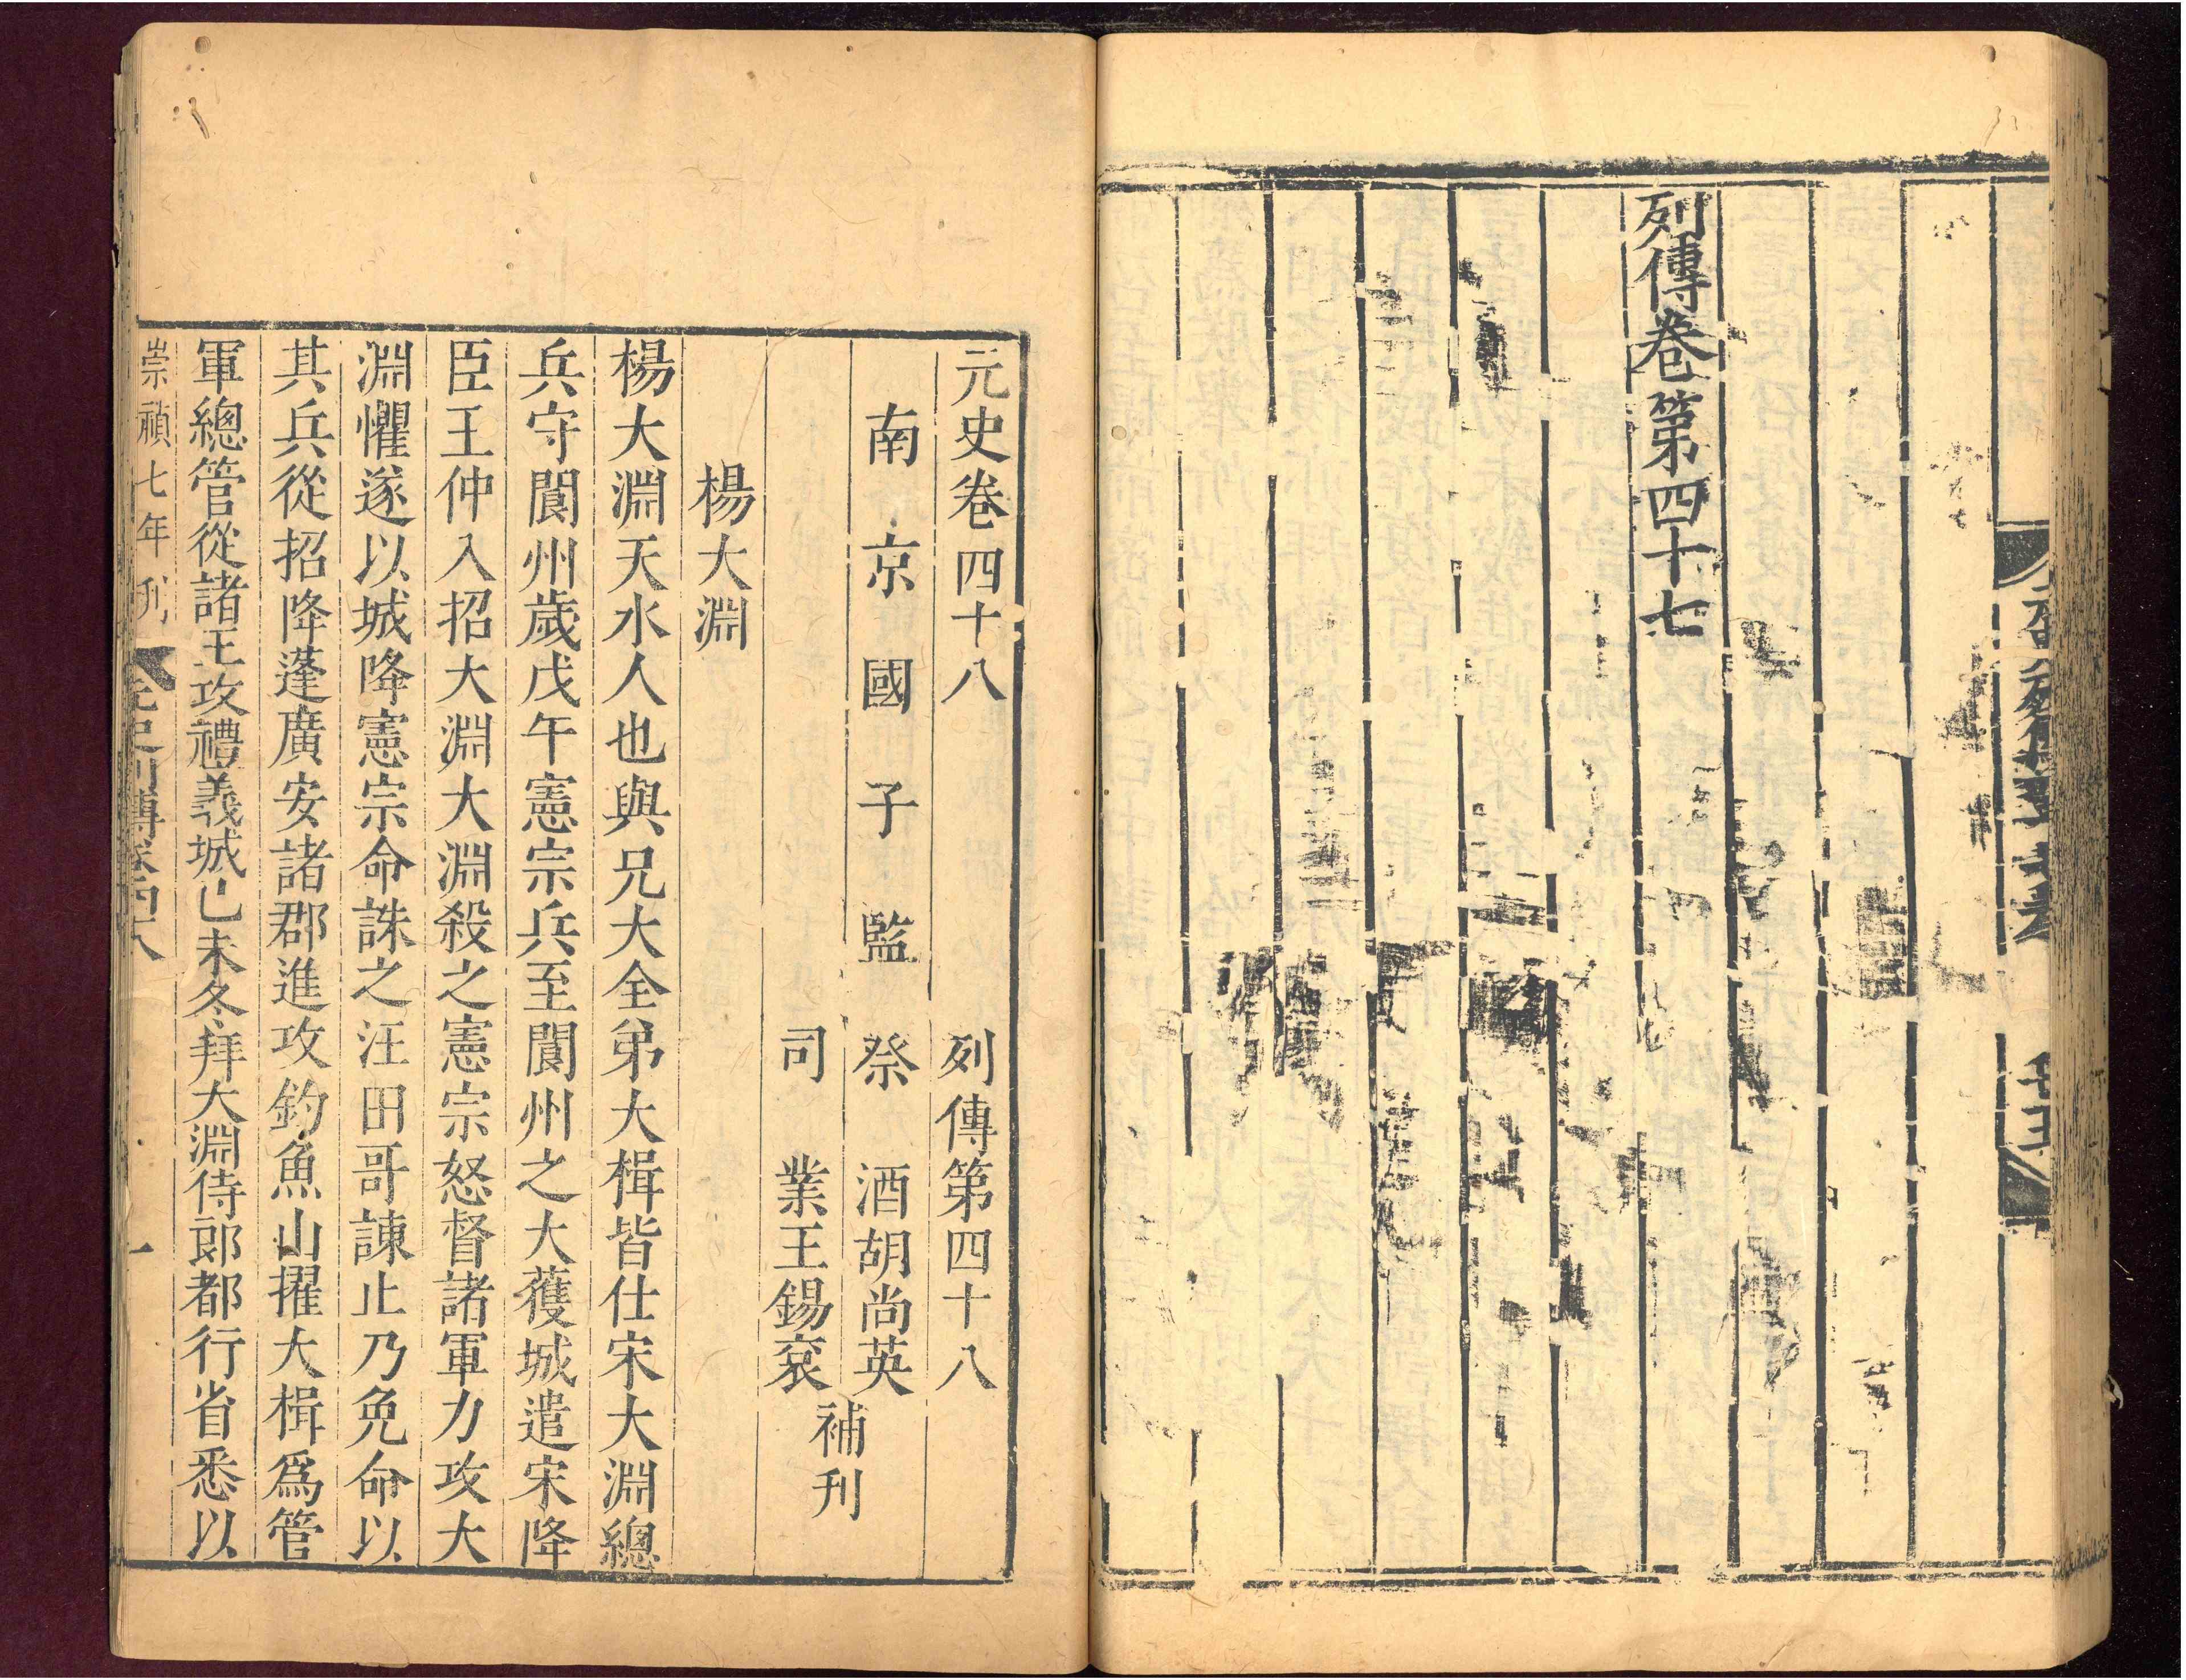 列傳卷第四十七
元史卷四十八　列傳第四十八
南京國子監祭酒胡尚英
司業王錫袞
補刊
楊大淵
楊大淵天水人也與兄大全弟大楫皆仕宋大淵總
兵守閬州歲戊午憲宗兵至閬州之大獲城遣宋降
臣王仲入招大淵大淵殺之憲宗怒督諸軍力攻大
淵懼遂以城降憲宗命誅之汪田哥諫止乃免命以
其兵從招降蓬廣安諸郡進攻釣魚山擢大楫爲管
軍總管從諸王攻禮義城已未冬拜大淵侍郎都行省悉以
崇禎七年刊
元史列傳卷四十八
一